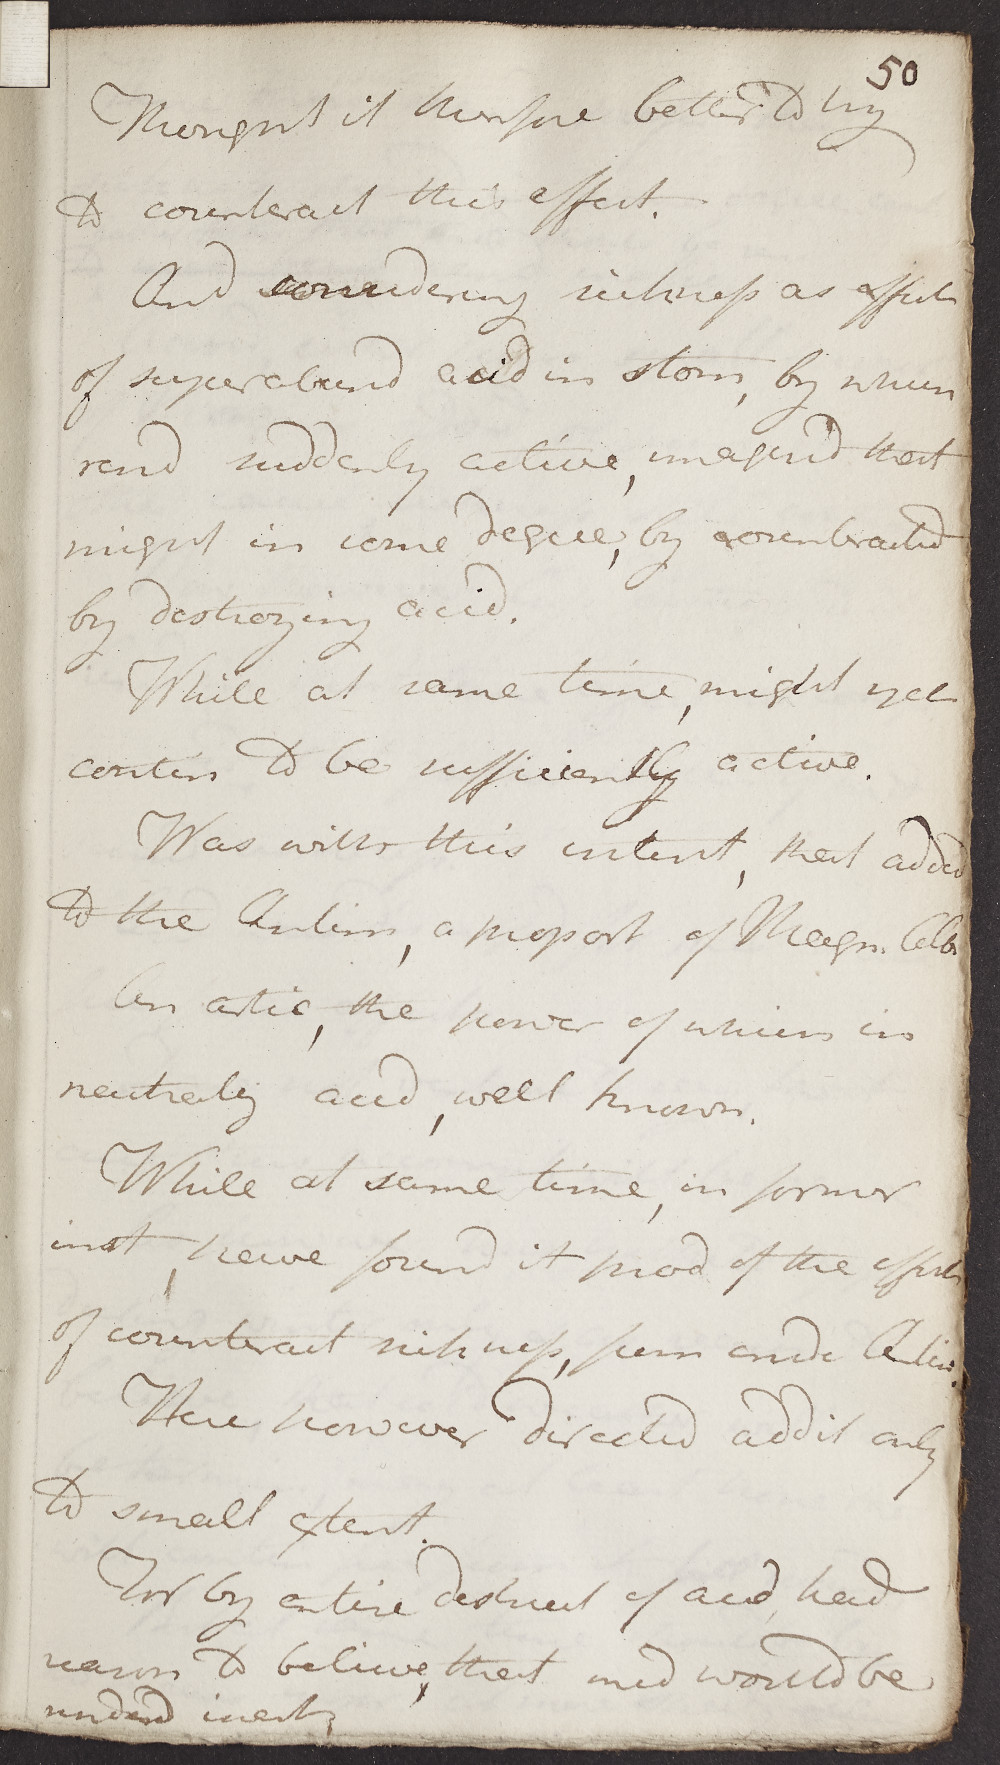 50
Thought it therefore better to try
to counteract this effect.
And considering sickness as effect
of superabund acid in stom, by which
rend suddenly active, imagin'd that
might in some degree, by counteracted
by destroying acid.
While at same time, might yet
contin to be sufficiently active.
Was with this intent, that added
to the Antim, a proport of Magn. Alb.
An artic, the power of which in
neutraliz acid, well known.
While at same time, in former
inst, have found it prod of the effect
of counteract sickness, from crude Antim.
Here however directed addit only
to small extent.
For by entire destruct of acid, had
reason to believe, that med would be
renderd inert,